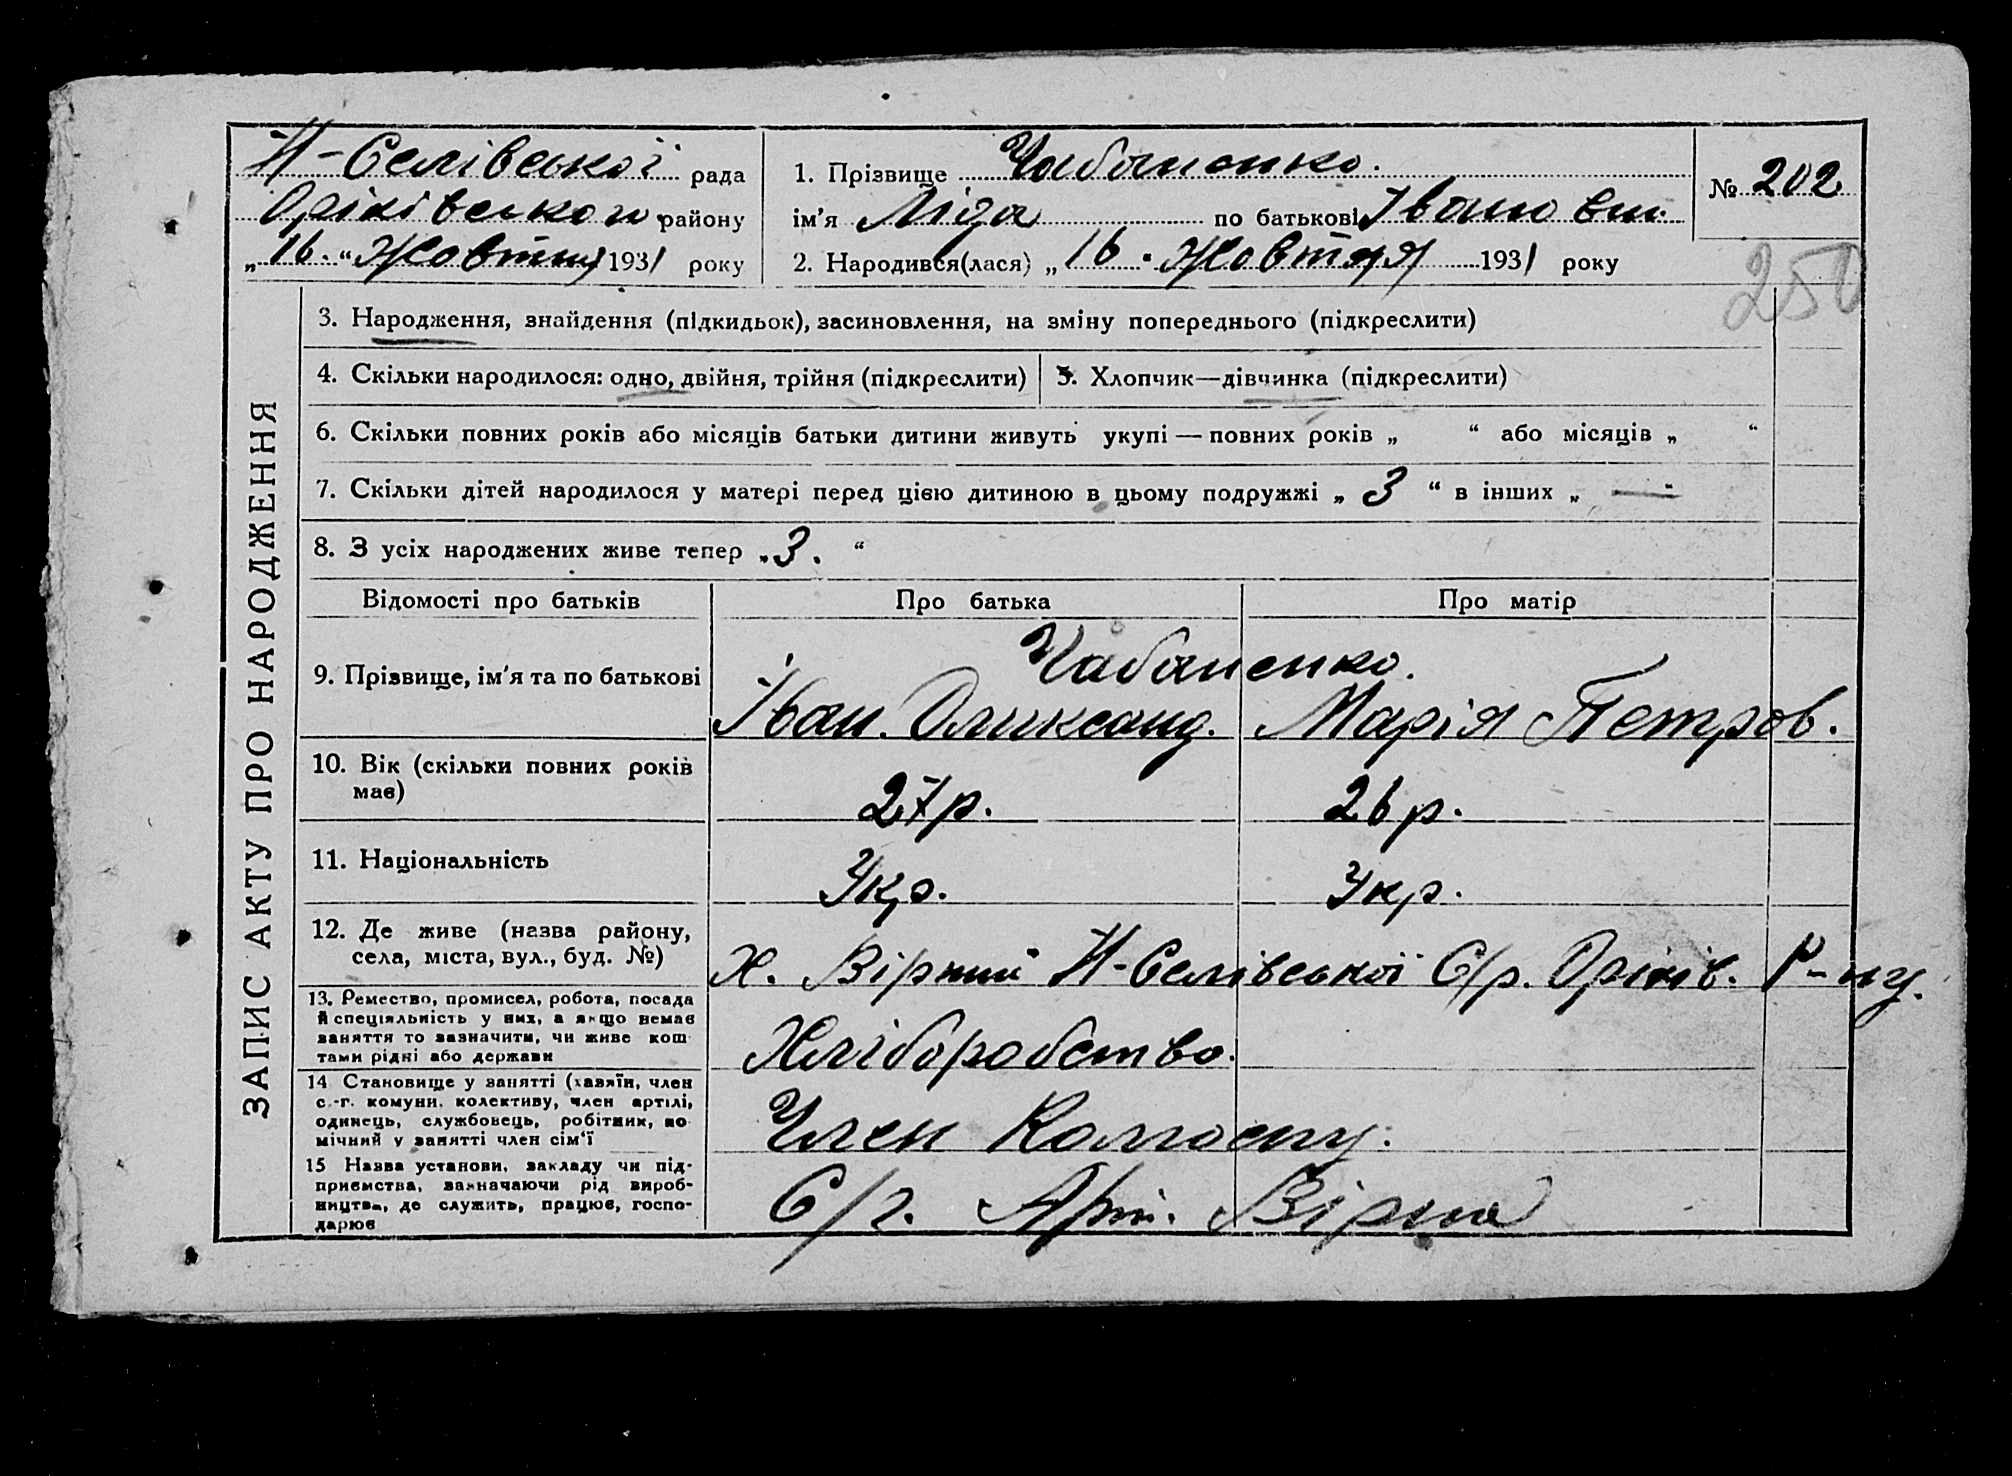 Н-Селівської рада
Оріхівського району
„16.“ Жовтня 1931 року
1. Прізвище Чабаненко.
ім'я Ліда по батькові Івановн.
2. Народився(лася) „16. Жовтня 1931 року
№ 202
250
ЗАПИС АКТУ ПРО НАРОДЖЕННЯ
3. Народження, знайдення (підкидьок), засиновлення, на зміну попереднього (підкреслити)
4. Скільки народилося: одно, двійня, трійня (підкреслити)
5. Хлопчик—дівчинка (підкреслити)
6. Скільки повних років або місяців батьки дитини живуть укупі — повних років „ “ або місяців „ “
7. Скільки дітей народилося у матері перед цією дитиною в цьому подружжі „ 3 “ в інших „ — “
8. З усіх народжених живе тепер „3. “
Відомості про батьків
Про батька
Про матір
9. Прізвище, ім'я та по батькові
Чабаненко.
Іван. Олександ.
Марія Петров.
10. Вік (скільки повних років
має)
27р.
26р.
11. Національність
Укр.
Укр.
12. Де живе (назва району,
села, міста, вул., буд. №)
Х. Вірний Н-Селівської С/р. Оріхів. Р-ну.
13. Ремество, промисел, робота, посада
й спеціяльність у них, а якщо немає
заняття то зазначити, чи живе кош
тами рідні або держави
Хліборобство.
14 Становище у занятті (хазяїн, член
с.-г. комуни, колективу, член артілі,
одинець, службовець, робітник, по
мічний у занятті член сім'ї
Член Колгоспу.
15 Назва установи, закладу чи під-
приємства, зазначаючи рід вироб-
ництва, де служить, працює, госпо-
дарює
С/г. Арт. Вірна